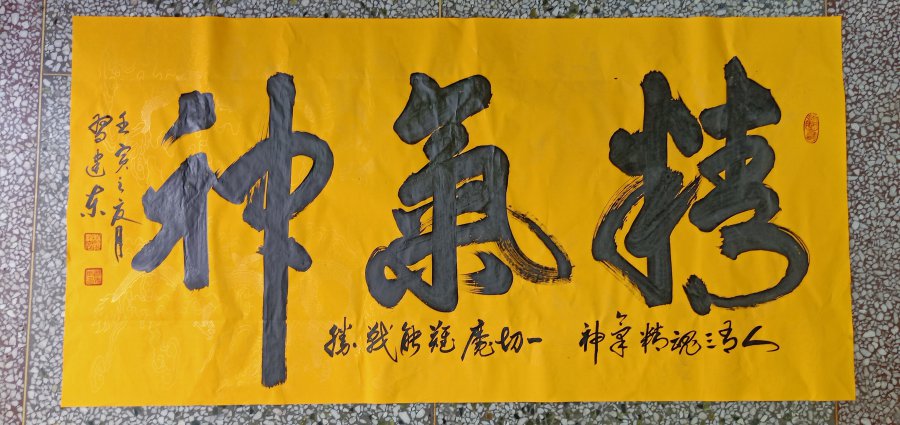 精氣神
人有三魂精氣神 一切魔難能戰勝
壬寅之夏月
習建东